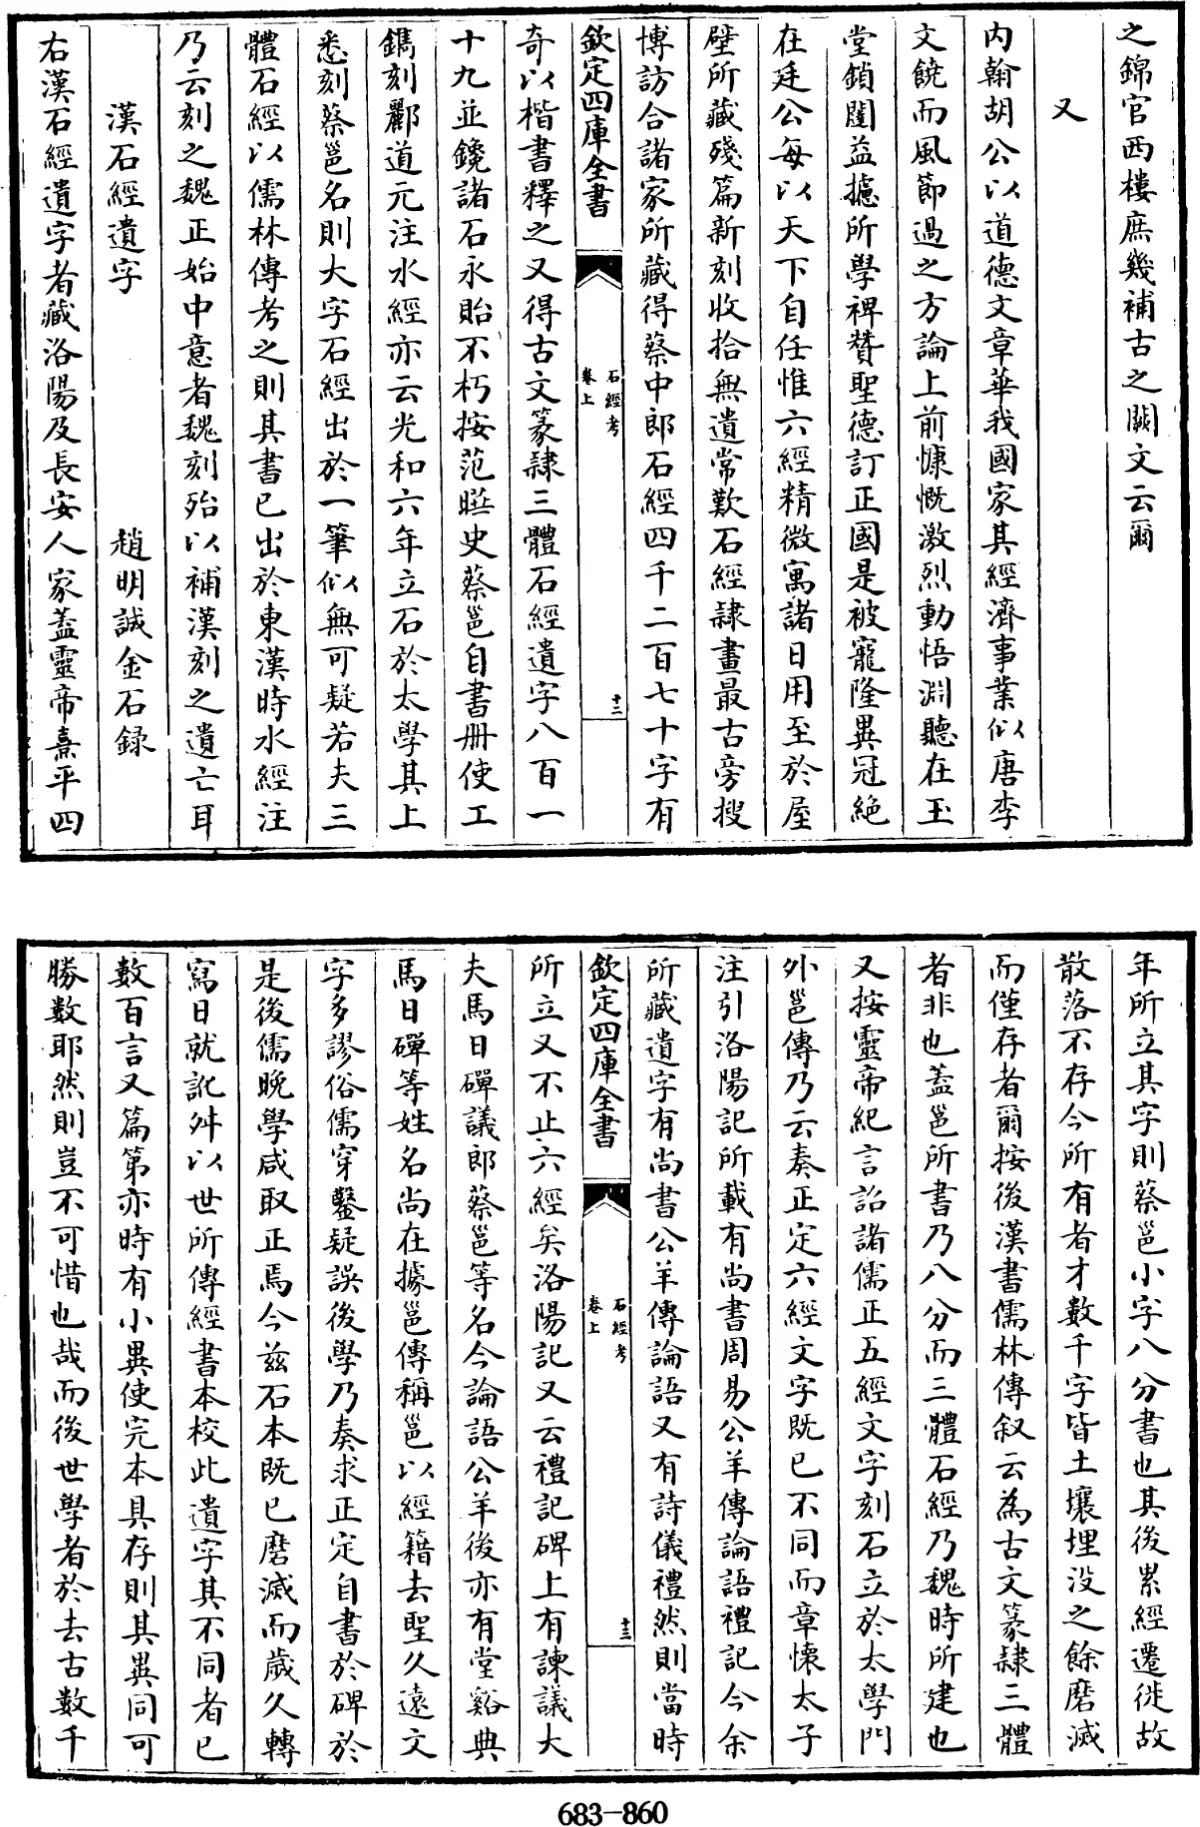 之錦官西樓庶幾補古之闕文云爾
又
内翰胡公以道德文章華我國家其經濟事業似唐李
文饒而風節過之方論上前慷慨激烈動悟淵聽在玉
堂鎖闥益攄所學裨贊聖德訂正國是被寵隆異冠絶
在廷公每以天下自任惟六經精微寓諸日用至於屋
壁所藏殘篇新刻收拾無遺常歎石經隷畫最古旁搜
博訪合諸家所藏得蔡中郎石經四千二百七十字有
欽定四庫全書
石經考
卷上
十二
奇以楷書釋之又得古文篆隷三體石經遺字八百一
十九並鑱諸石永貽不朽按范曄史蔡邕自書册使工
鐫刻酈道元注水經亦云光和六年立石於太學其上
悉刻蔡邕名則大字石經出於一筆似無可疑若夫三
體石經以儒林傳考之則其書已出於東漢時水經注
乃云刻之魏正始中意者魏刻殆以補漢刻之遺亡耳
漢石經遺字 趙明誠金石録
右漢石經遺字者藏洛陽及長安人家蓋靈帝熹平四
年所立其字則蔡邕小字八分書也其後累經遷徙故
散落不存今所有者才數千字皆土壤埋没之餘磨滅
而僅存者爾按後漢書儒林傳叙云為古文篆隷三體
者非也蓋邕所書乃八分而三體石經乃魏時所建也
又按靈帝紀言詔諸儒正五經文字刻石立於太學門
外邕傳乃云奏正定六經文字既已不同而章懷太子
注引洛陽記所載有尚書周易公羊傳論語禮記今余
所藏遺字有尚書公羊傳論語又有詩儀禮然則當時
欽定四庫全書
石經考
卷上
十三
所立又不止六經矣洛陽記又云禮記碑上有諫議大
夫馬日磾議郎蔡邕等名今論語公羊後亦有堂谿典
馬日磾等姓名尚在據邕傳稱邕以經籍去聖久遠文
字多謬俗儒穿鑿疑誤後學乃奏求正定自書於碑於
是後儒晚學咸取正焉今兹石本既已磨滅而歲久轉
寫日就訛舛以世所傳經書本校此遺字其不同者已
數百言又篇第亦時有小異使完本具存則其異同可
勝數耶然則豈不可惜也哉而後世學者於去古數千
683-860